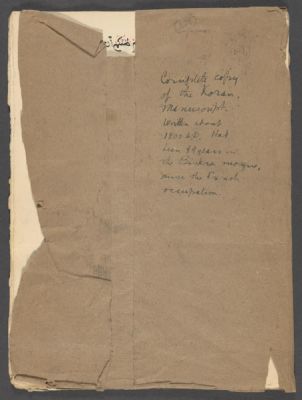 Complete copy
of the Koran.
Manuscript.
Written about
1800 A.D. Had
been 49 years in
the Biskra mosque,
since the French
occupation.